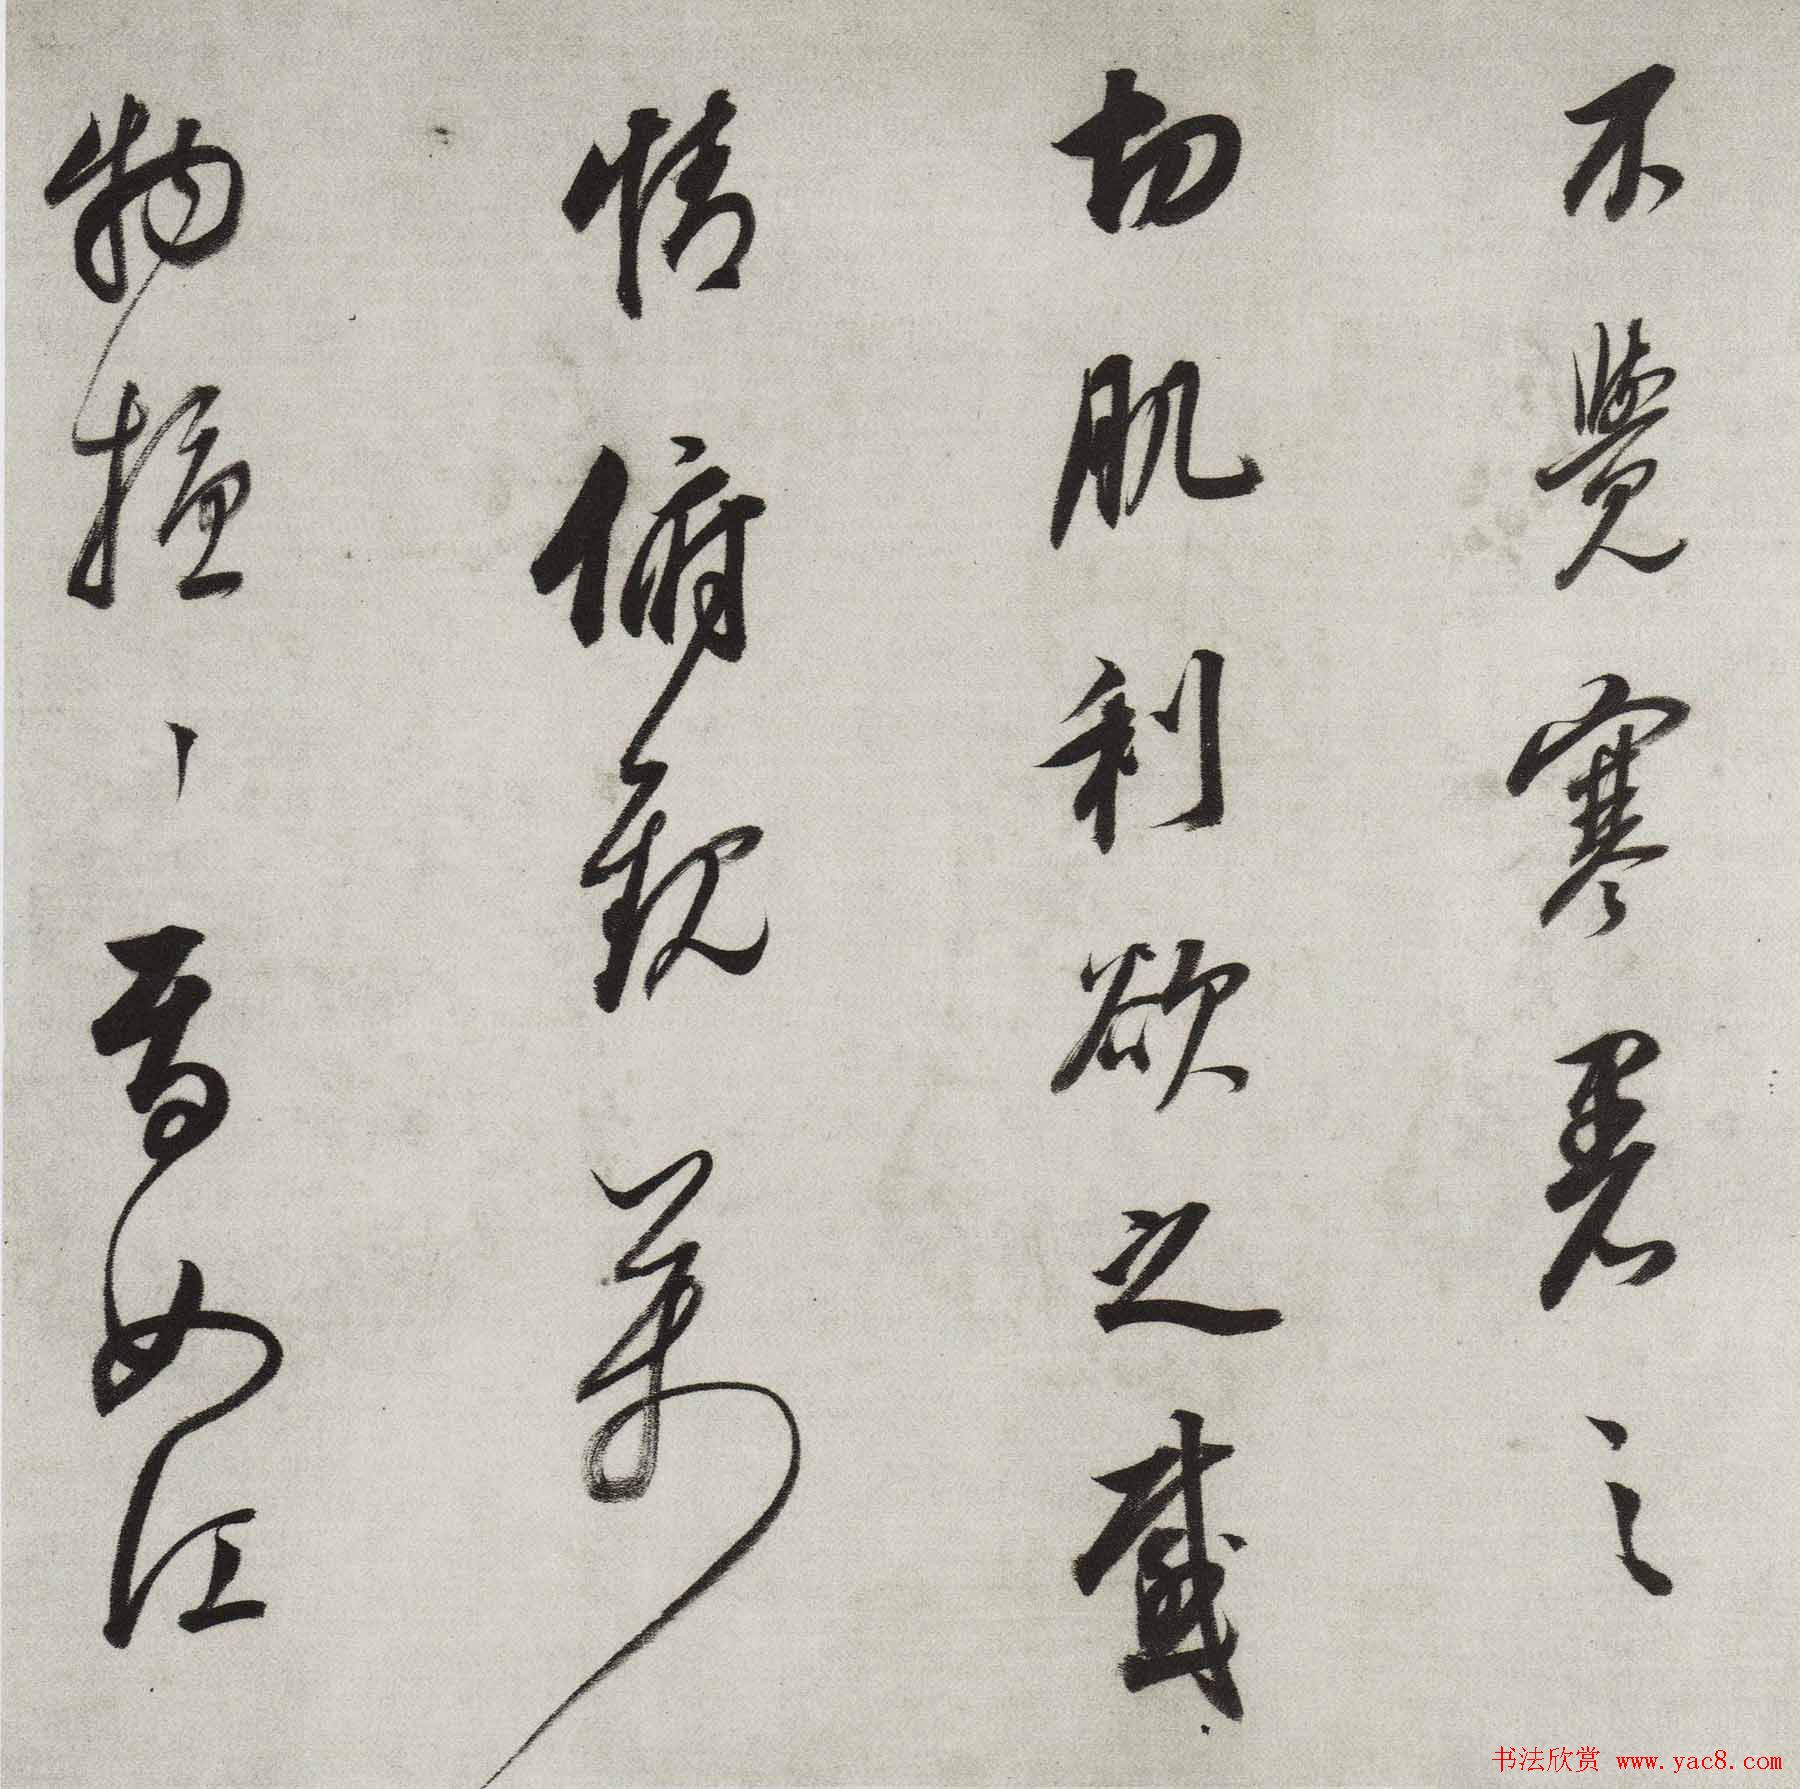 不覺寒暑之
切肌利欲之感
情俯觀萬
物擾〻焉如江
书法欣赏 www.yac8.com